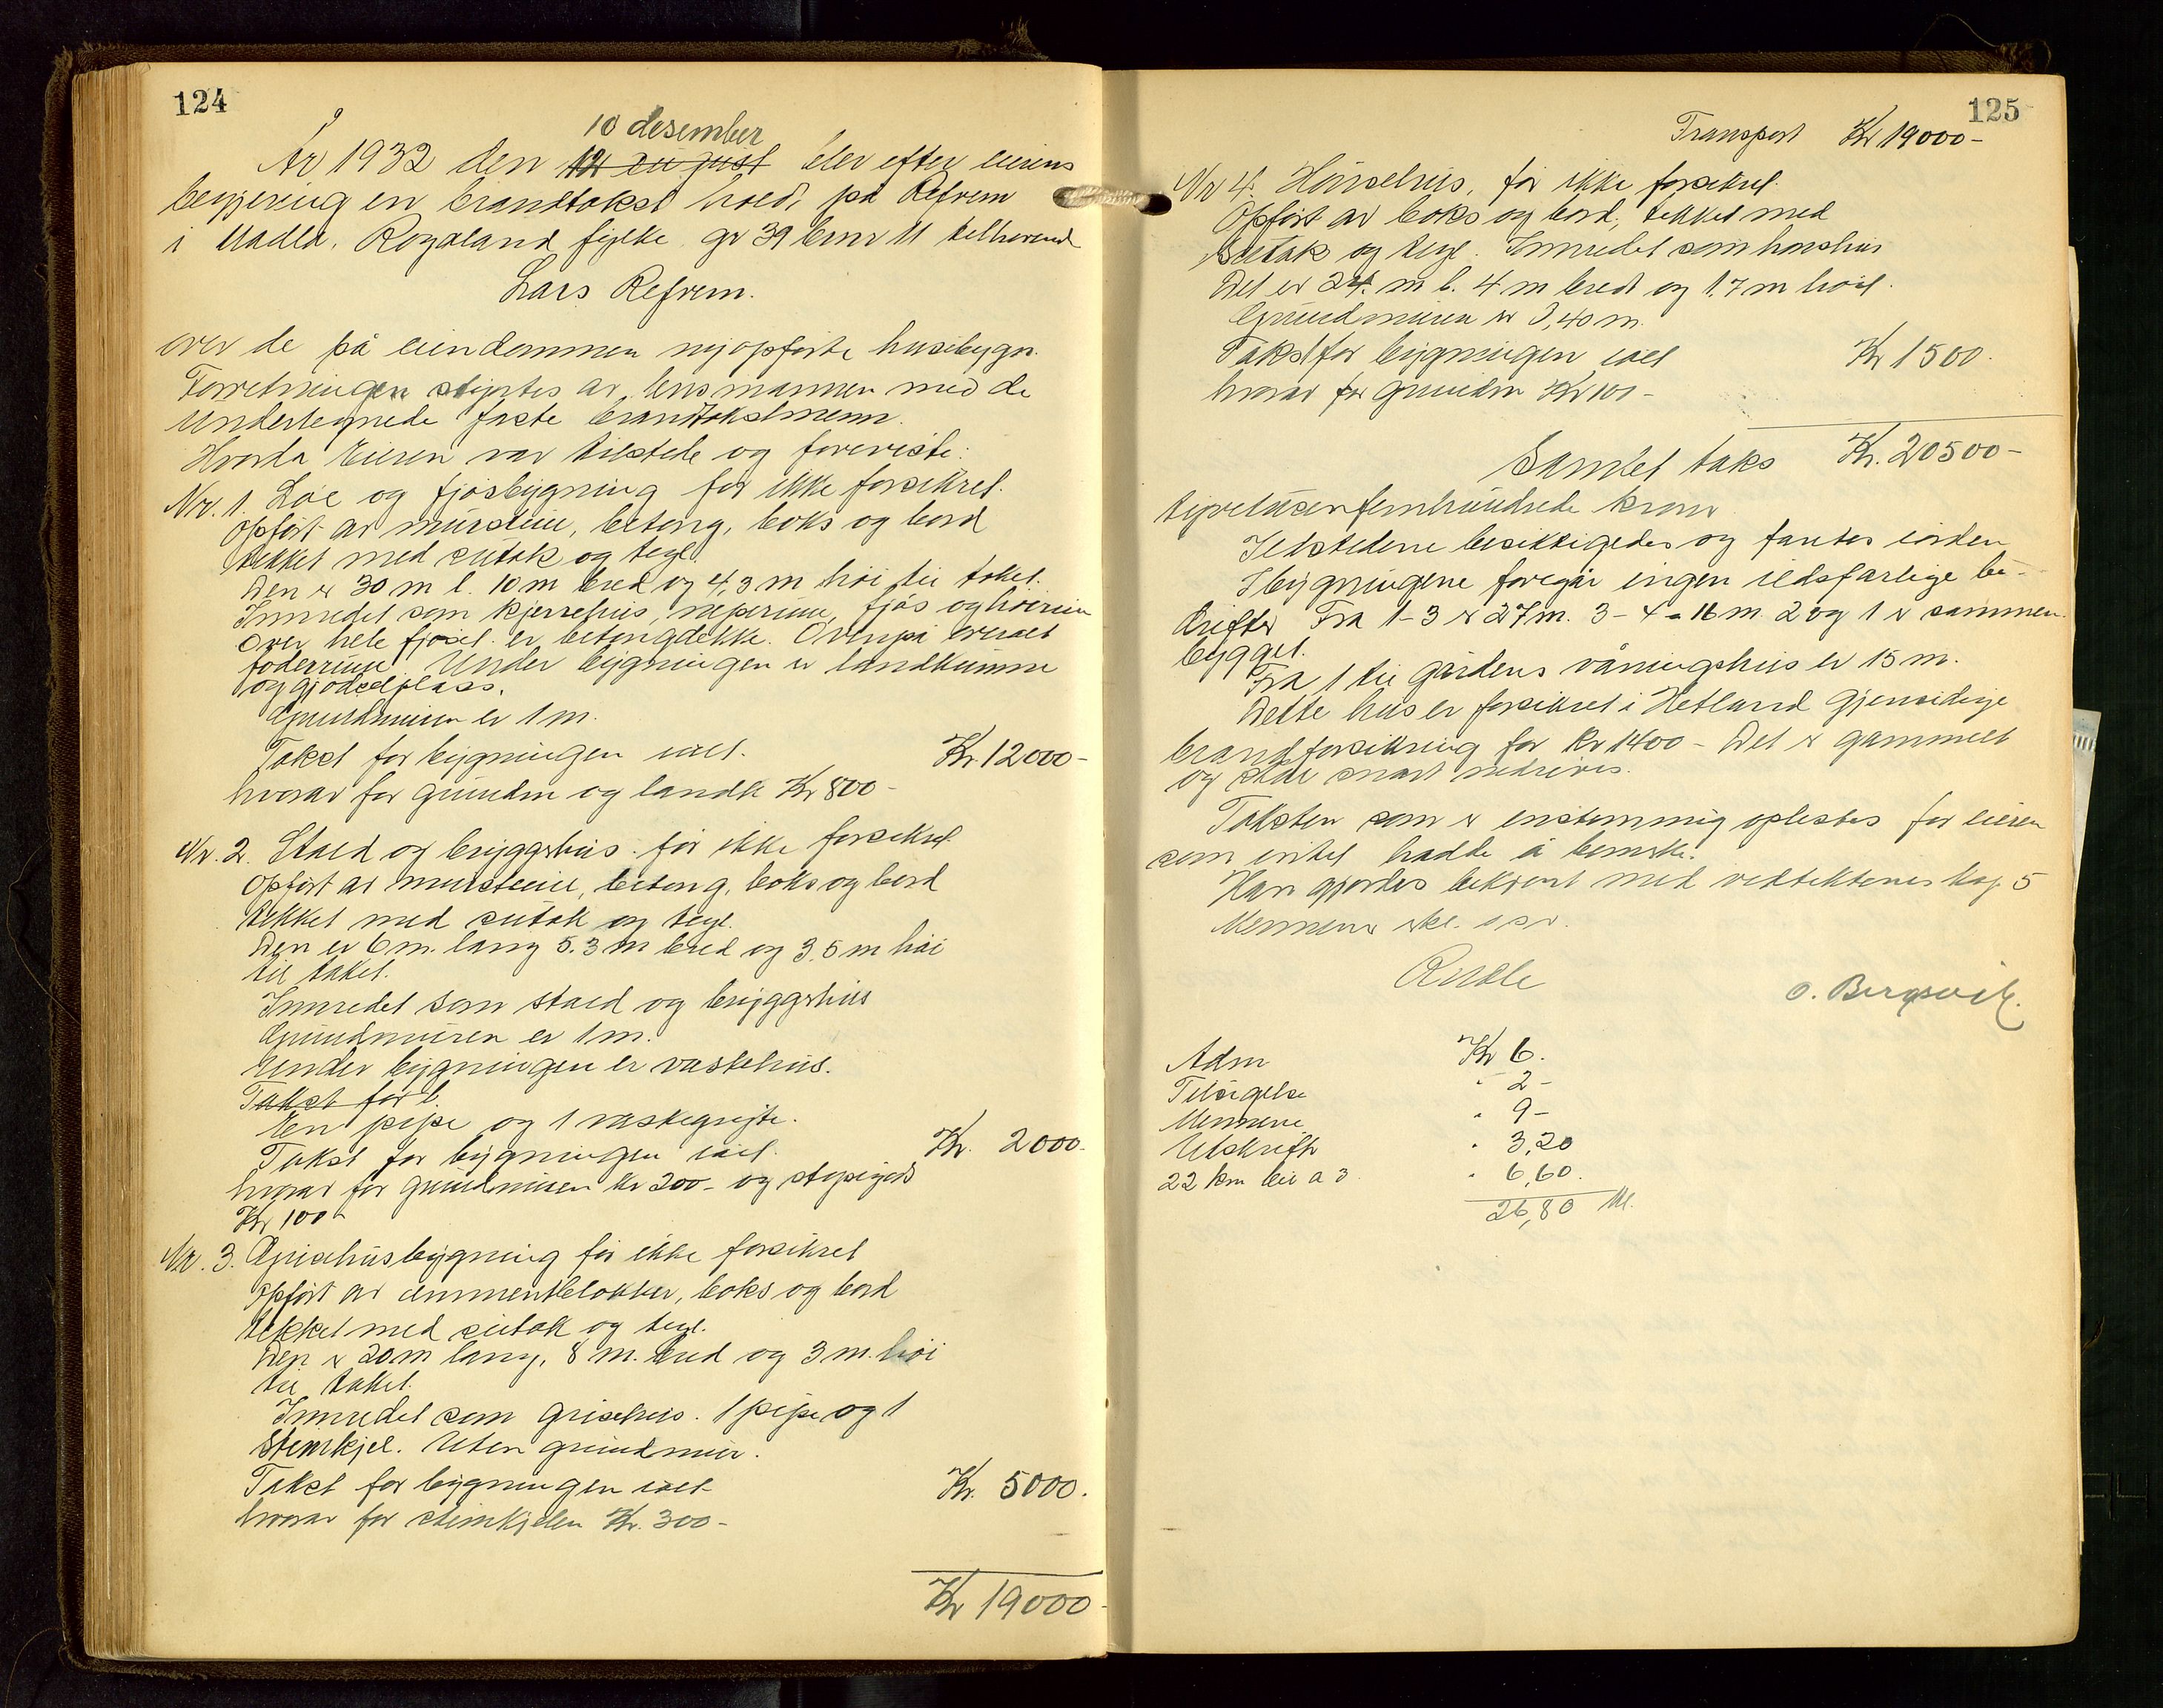 124
10 desember
År 1932 den 12 august blev efter eierens
begjering en brandtakst holdt på Refrem
i Madla, Rogaland fylke gr 39 brnr 11 tilhørende
Lars Refrem.
over de på eiendommen nyopførte husebygn.
Forretningen styrtes av lensmannen med de
undertegnede faste brandtakstmenn.
Hvorda Eieren var tilstede og foreviste:
Nr. 1. Løe og fjøsbygning før ikke forsikret.
Opført av mursteine, betong, boks og bord
tekket med sutak og tegl.
Den er 30 m l. 10 m bred og 4,3 m høi til taket.
Innredet som kjerrehus, neperum, fjøs og høirum
Over hele fjøset er betongdekke. Ovenpå overalt
foderrum. Under bygningen er landkumme
og gjødselplass.
Grundmuren er 1 m.
Takst for bygningen ialt. Kr. 12000-
hvorav for grundm og landk Kr 800-
Nr. 2. Stald og bryggehus før ikke forsikret
Opført av mursteine, betong, boks og bord
tekket med sutak og tegl.
Den er 6 m. lang 5.3 m bred og 3.5 m høi
til taket.
Innredet som stald og bryggehus
Grundmuren er 1 m.
Under bygningen er vaskehus.
Takst for b.
En pipe og 1 vaskegryte.
Takst for bygningen ialt. Kr. 2000-
hvorav for grundmuren kr 200- og støpegods
Kr 100-
Nr. 3. Grisehusbygning før ikke forsikret
Opført av cementblokker, boks og bord
tekket med sutak og tegl.
Den er 20 m lang, 8 m. bred og 3 m. høi
til taket.
Innredet som grisehus. 1 pipe og 1
Steimkjel. Uten grundmur.
Takst for bygningen ialt Kr. 5000.
hvorav for steimkjelen Kr. 300-
Kr 19000-
125
Transport Kr 19000-
Nr 4. Hønsehus, før ikke forsikret.
Opført av boks og bord, tekket med
sutak og tegl. Innredet som hønshus
Det er 24. m l. 4 m bredt og 1.7 m høit.
Grundmuren er 0,40 m.
Takst for bygningen ialt Kr 1500.
hvorav for grundm Kr 100-
Samlet takst Kr. 20500-
tyvetusenfemhundrede kroner
Ildstedene besiktigedes og fantes iorden
I bygningene foregår ingen ildsfarlige be-
drifter Fra 1-3 er 27 m. 3-4 = 16 m. 2 og 1 er sammen-
bygget.
Fra 1 til gårdens våningshus er 15 m.
Dette hus er forsikret i Hetland gjensidige
brandforsikring for kr 1400- Det er gammelt
og skal snart nedrives.
Taksten som er enstemmig oplestes for eieren
som intet hadde å bemerke.
Han gjordes bekjent med vedtektenes kap 5
Mennene
O. Bergsvik.
Adm Kr 6.
Tilsigelse " 2-
Mennene " 9-
Utskrift " 3,20
22 km bil a 3 " 6,60.
26,80